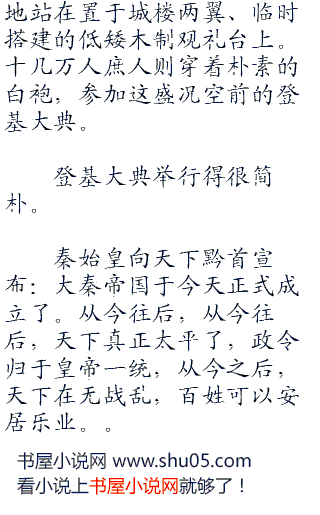 地站在置于城楼两翼、临时
搭建的低矮木制观礼台上。
十几万人庶人则穿着朴素的
白袍，参加这盛况空前的登
基大典。
登基大典举行得很简
朴。
秦始皇向天下黔首宣
布：大秦帝国于今天正式成
立了。从今往后，从今往
后，天下真正太平了，政令
归于皇帝一统，从今之后，
天下在无战乱，百姓可以安
居乐业。。
书屋小说网 www.shu05.com
看小说上书屋小说网就够了！